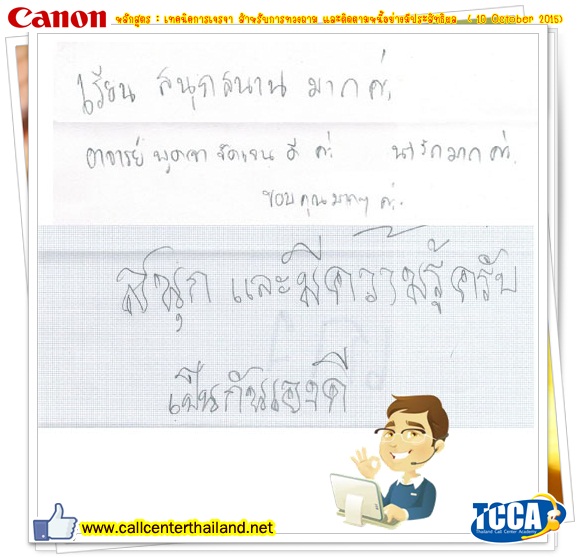 Canon หลักสูตร : เทคนิคการเจรจา สำหรับการทวงถาม และติดตามหนี้อย่างมีประสิทธิผล ( 10 October 2015)
เรียน สนุกสนาน มากค่ะ
อาจารย์ พูดจา ชัดเจน ดี ค่ะ น่ารักมาก ค่ะ
ขอบคุณมากๆ ค่ะ
สนุก และมีความรู้ครับ
เป็นกันเองดี
www.callcenterthailand.net
TCCA
Thailand Call Center Academy